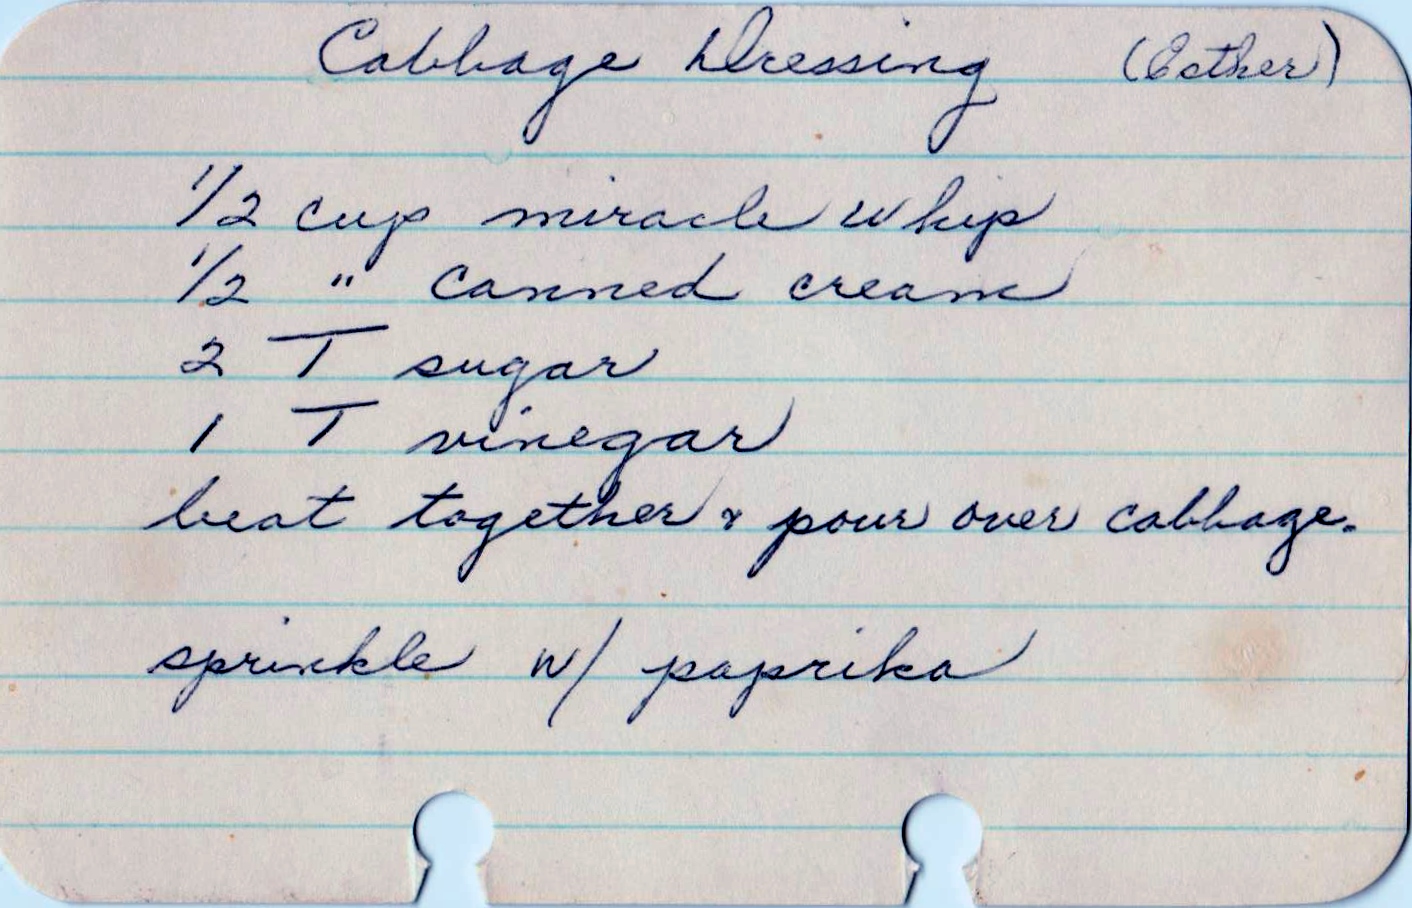 Cabbage Dressing (Esther)
1/2 cup miracle whip
1/2 " canned cream
2 T sugar
1 T vinegar
beat together & pour over cabbage.
sprinkle w/ paprika